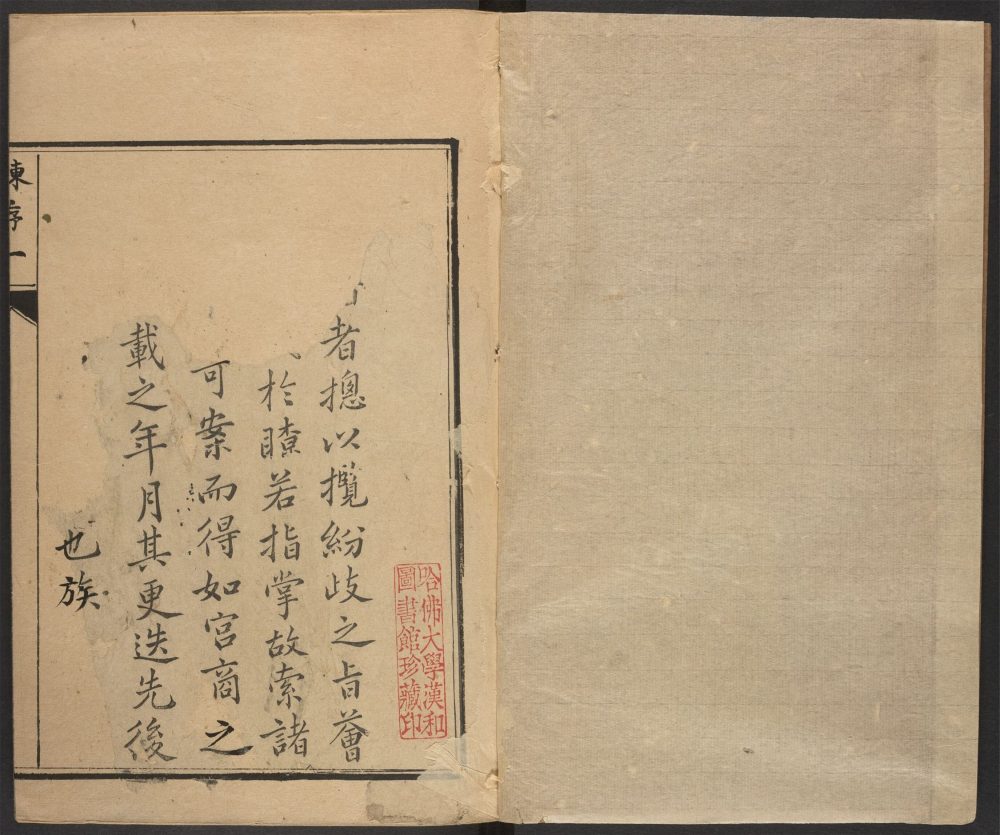 者揔以攬紛歧之旨薈
於瞭若指掌故索諸
可案而得如宫商之
載之年月其更迭先後
也族
陳序一
哈佛大學漢和
圖書館珍藏印